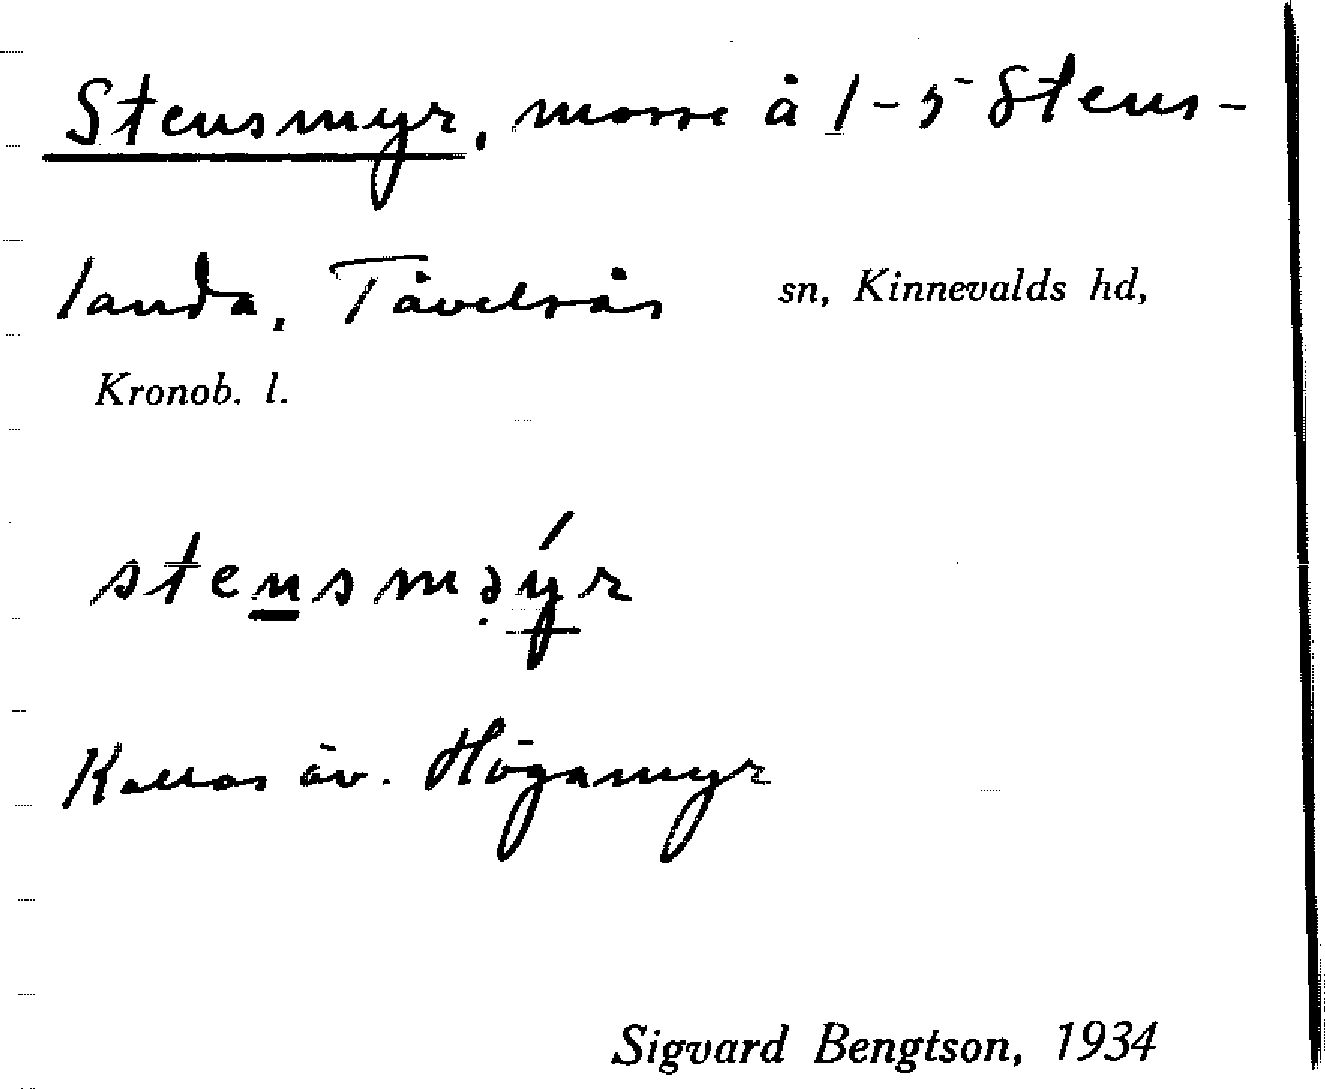 Stensmyr, mosse å 1-5 Stens-
landa, Tävelsås sn, Kinnevalds hd,
Kronob. l.
stensməý̠r
Kallas äv. Högamyr
Sigvard Bengtson, 1934